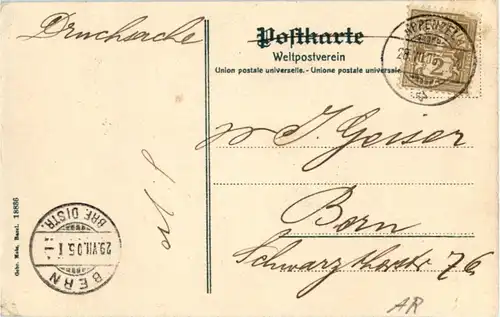 Drucksache
Postkarte
Weltpostverein
Union postale universelle. - Unione postale universale
APPENZELL
28.VII.05
2
J. Geiser
Bern
Schwarzthorstr 76
BERN
29.VII.05.
BRF. DISTR.
Gebr. Metz, Basel. 18886
AR